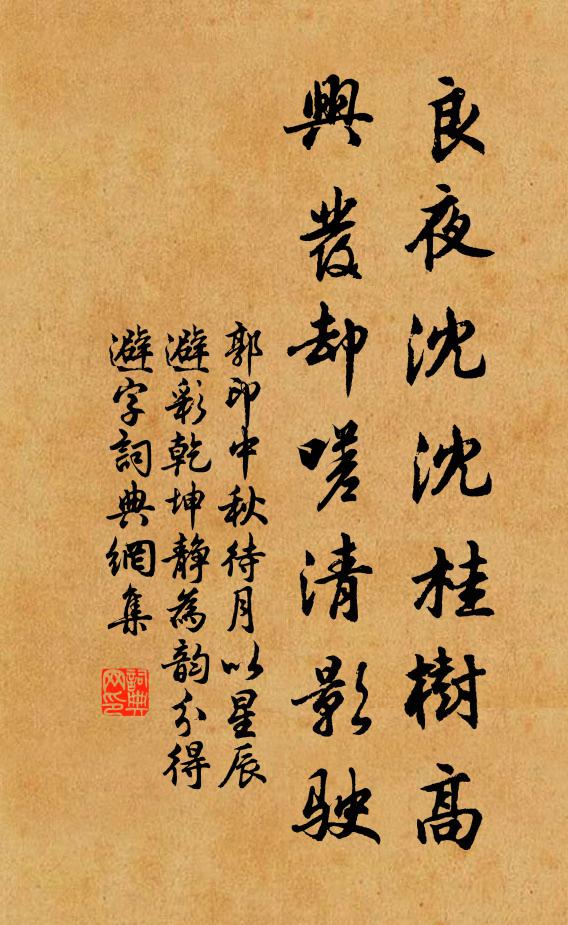 良夜沈沈桂樹高
興發却嗟清影駛
郭印中秋待月以星辰
避彩乾坤靜為韵分得
避字詞典網集
詞典網印